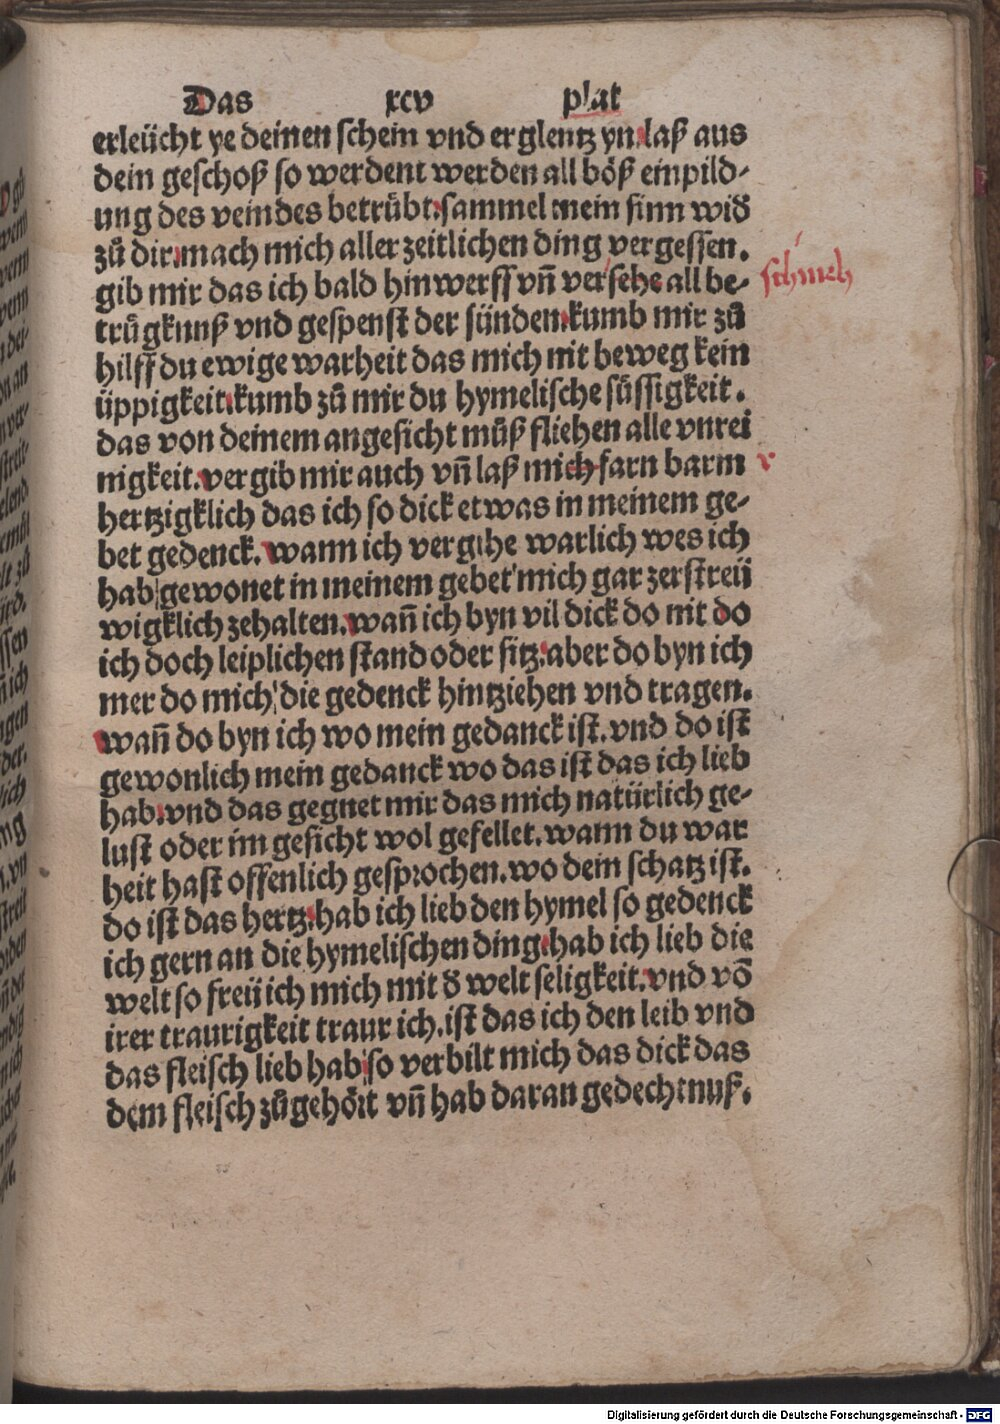 Das xcv plat
erleücht ye deinen schein vnd erglentz yn. laß aus
dein geschoß so werdent werden all böß einpild-
ung des veindes betrübt. sammel mein sinn wid
zů dir. mach mich aller zeitlichen ding vergessen.
gib mir das ich bald hinwerff vn̄ versehe all be-
schmeh
trügknuß vnd gespenst der sünden. kumb mir zů
hilff du ewige warheit das mich nit beweg kein
üppigkeit. kumb zů mir du hymelische süssigkeit.
das von deinem angesicht můß fliehen alle vnrei
nigkeit. vergib mir auch vn̄ laß mich farn barm
r
hertzigklich das ich so dick etwas in meinem ge-
bet gedenck. wann ich vergihe warlich wes ich
hab gewonet in meinem gebet mich gar zerstreü
wigklich zehalten. wan̄ ich byn vil dick do nit do
ich doch leiplichen stand oder sitz. aber do byn ich
mer do mich die gedenck hintziehen vnd tragen.
wan̄ do byn ich wo mein gedanck ist. vnd do ist
gewonlich mein gedanck wo das ist das ich lieb
hab. vnd das gegnet mir das mich natürlich ge-
lust oder im gesicht wol gefellet. wann du war
heit hast offenlich gesprochen. wo dein schatz ist.
do ist das hertz. hab ich lieb den hymel so gedenck
ich gern an die hymelischen ding. hab ich lieb die
welt so freü ich mich mit d welt seligkeit. vnd vō
irer traurigkeit traur ich. ist das ich den leib vnd
das fleisch lieb hab so verbilt mich das dick das
dem fleisch zůgehört vn̄ hab daran gedechtnuß.
Digitalisierung gefördert durch die Deutsche Forschungsgemeinschaft - DFG